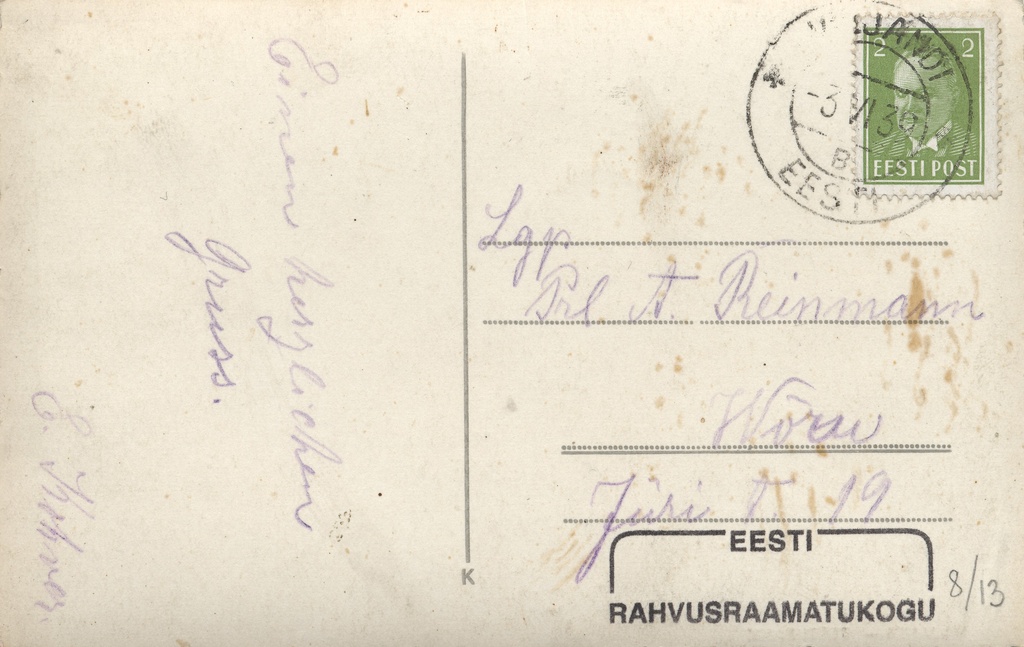 Einen herzlichen
Gruss.
E. 
VILJANDI
-3 VI 3
B
EESTI
2 2
EESTI POST
Lgp
Prl A. Reinmann
Wõru
Jüri T 19
K
EESTI
RAHVUSRAAMATUKOGU
8/13